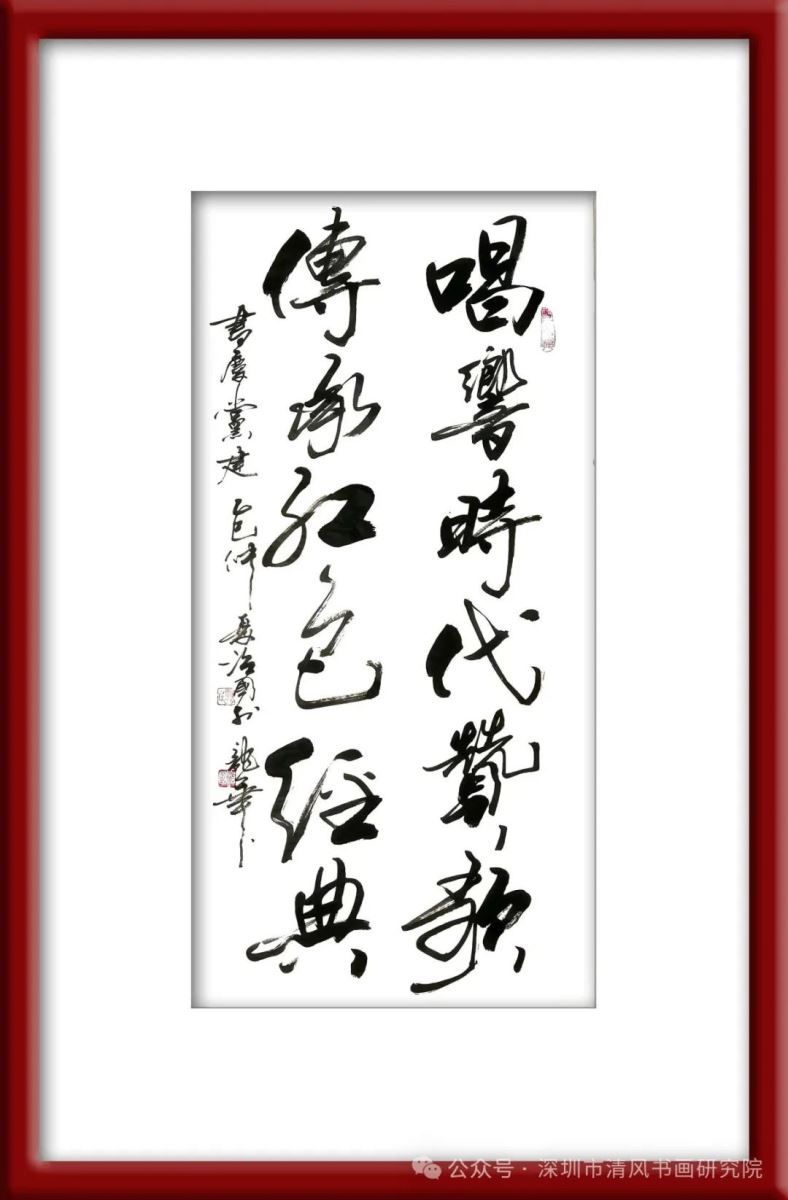 唱響時代贊歌
傳承紅色經典
書慶黨建 乙巳仲夏治國於龍華
公众号 · 深圳市清风书画研究院